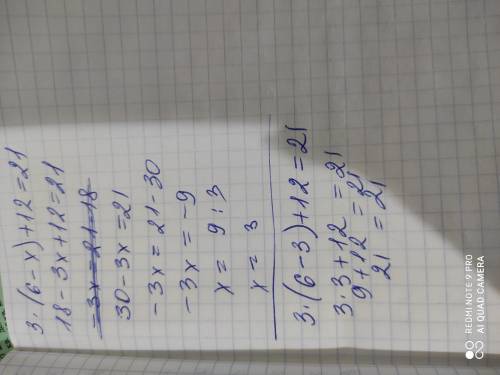 3·(6-x)+12=21
18-3x+12=21
-3x=21-18
30-3x=21
-3x=21-30
-3x=-9
x=9:3
x=3
3·(6-3)+12=21
3·3+12=21
9+12=21
21=21
REDMI NOTE 9 PRO
AI QUAD CAMERA